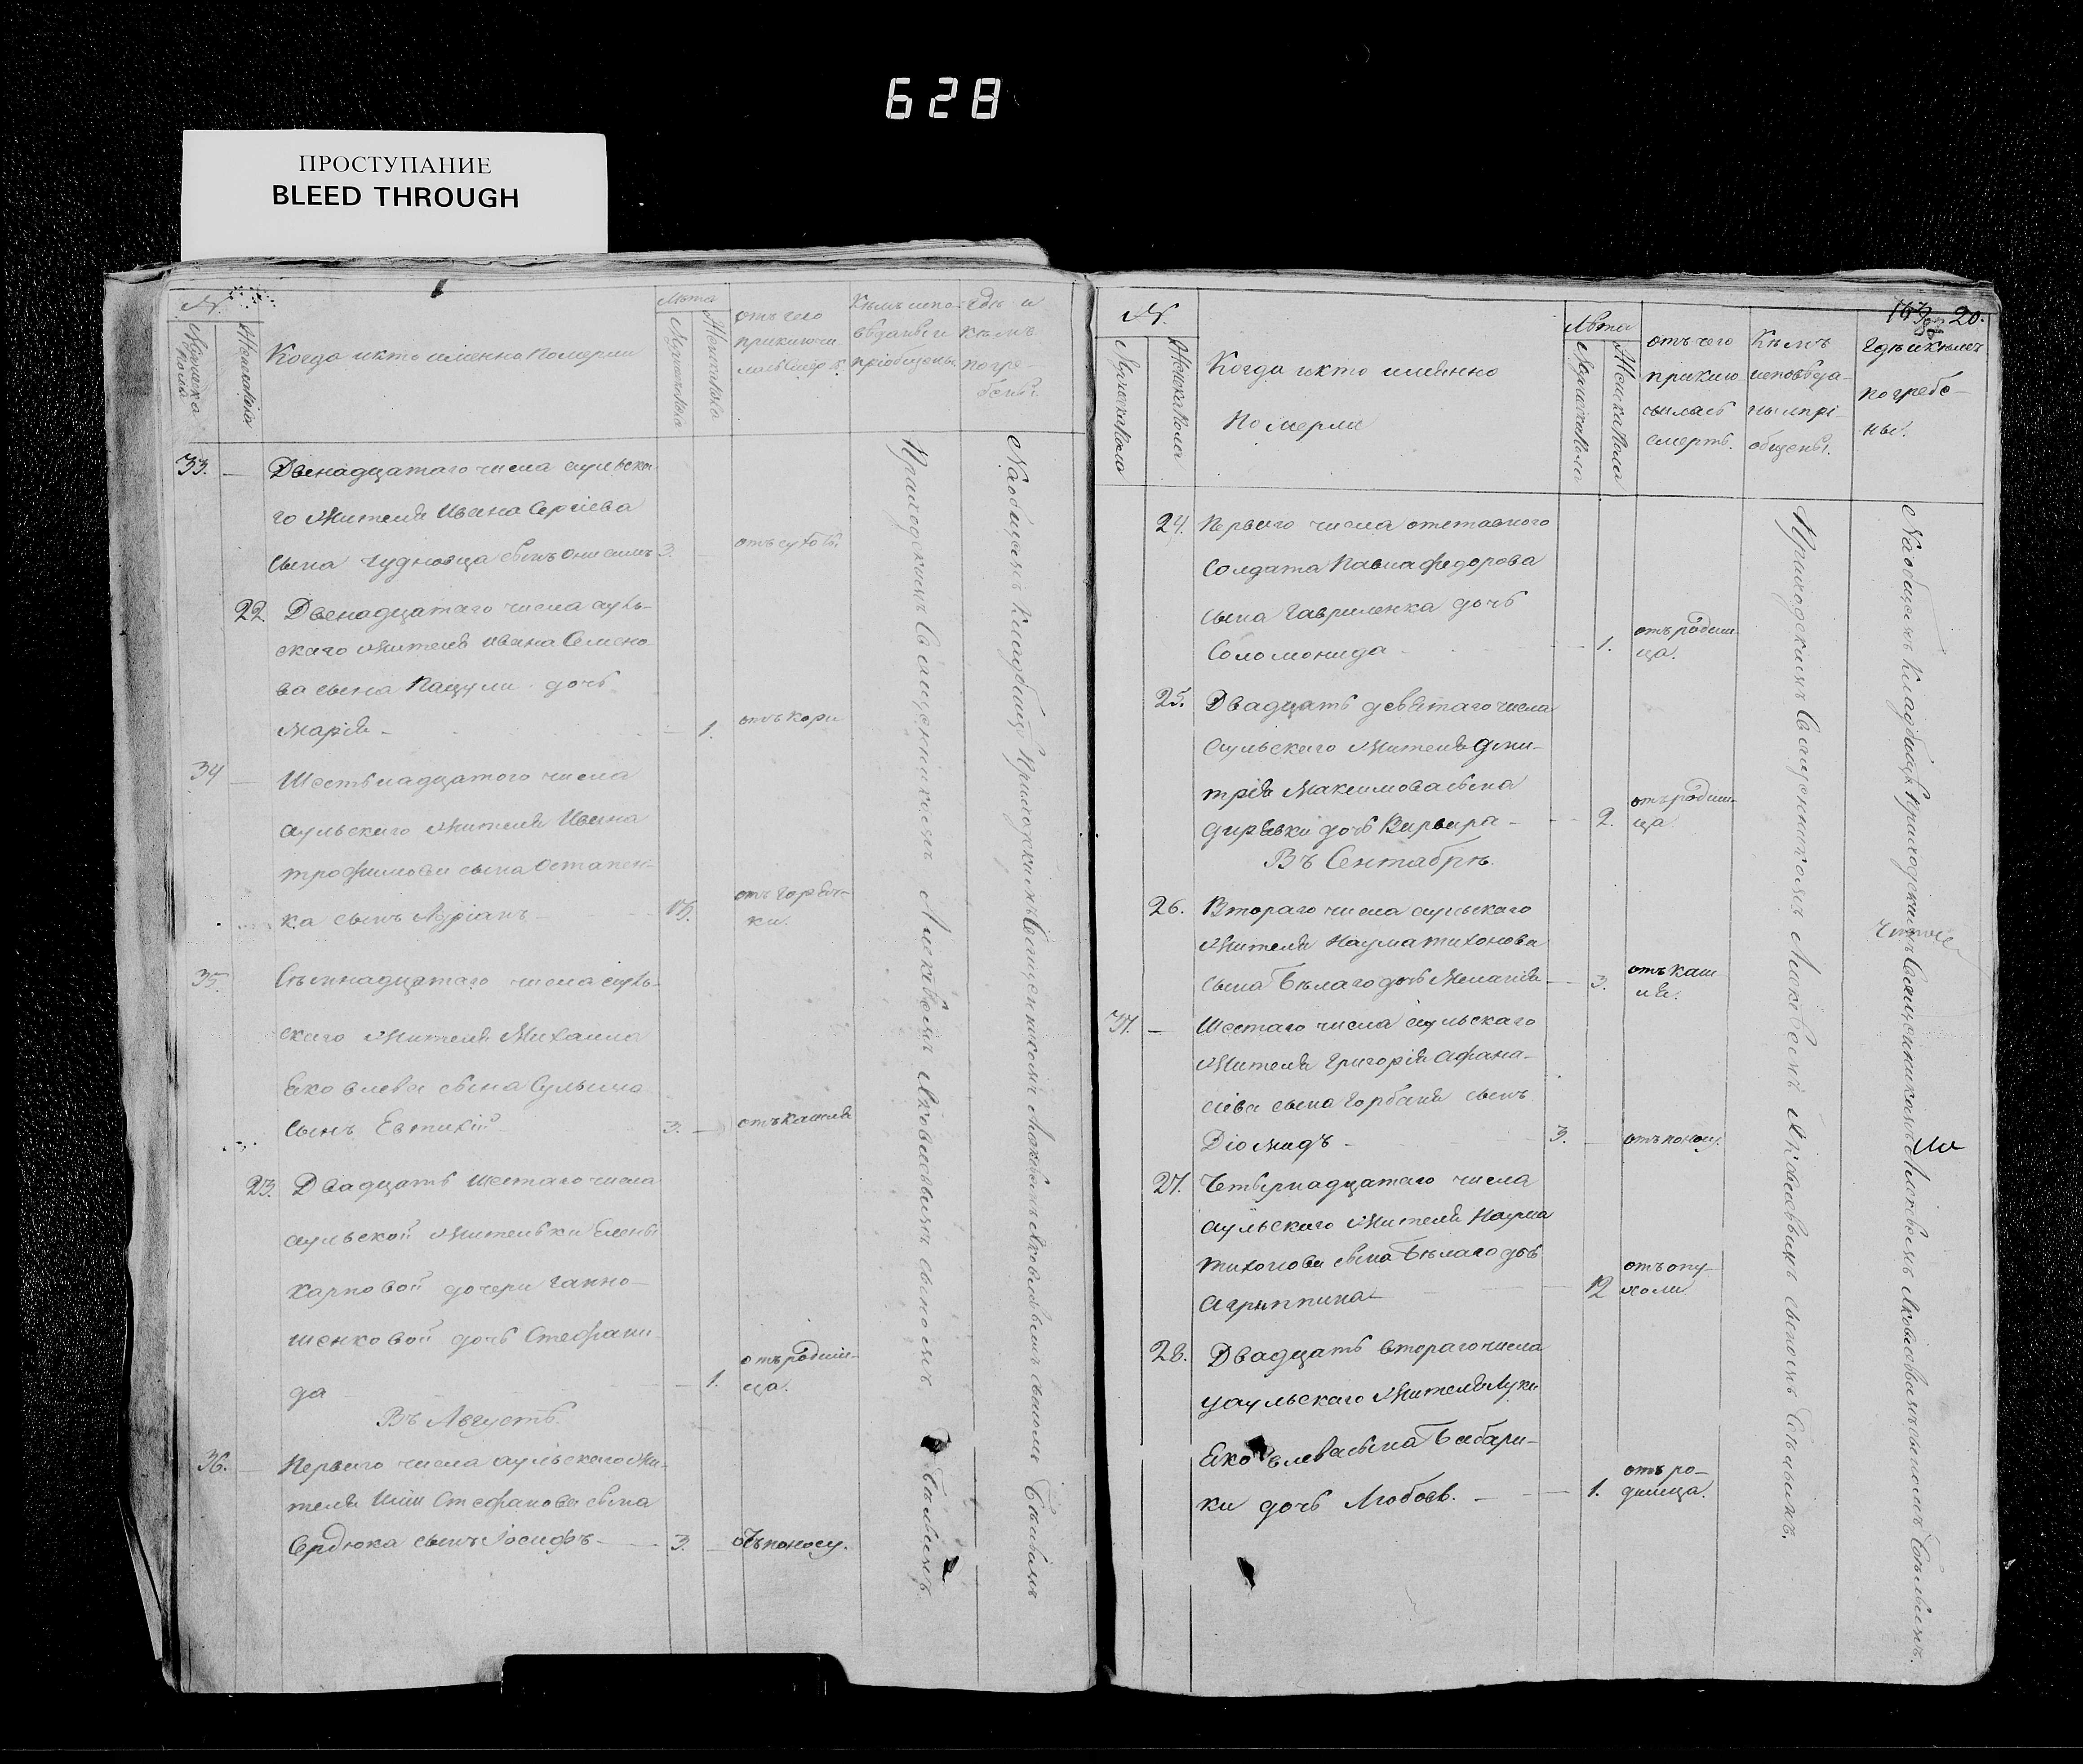 628
ПРОСТУПАНИЕ
BLEED THROUGH
№
Мужеска пола
Женска пола
Когда и кто именно померли
Лѣта
Мужска пола
Женска пола
отъ чего
приключи
лась смерть
Кѣмъ испо-
вѣданы и
пріобщены
Гдѣ и
кѣмъ
погре-
бены
33. Двенадцатаго числа аульска-
го жителя Ивана Сергіева
сына Чудновца сынъ Онисимъ 3. отъ сухоты
22. Двенадцатаго числа ауль-
скаго жителя Ивана Семено
ва сына Пацули дочь
Марія 1. отъ кори
34 Шестьнадцатого числа
аульскаго жителя Ивана
Трофимова сына Остапен-
ка сынъ Адріанъ отъ горяч-
ки.
35. Семнадцатаго числа ауль-
скаго жителя Михаила
Яковлева сына Сулыма
сынъ Евтихій 3. отъ кашля
23. Двадцать шестаго числа
аульской жительки Елены
Карповой дочери Ганно-
шенковой дочь Стефани
да 1. отъ родим-
ца.
Въ Августѣ.
36. Перваго числа аульскаго жи-
теля Иліи Стефанова сына
Сердюка сынъ Іосифъ 3. отъ поносу.
Приходскимъ Священникомъ Алексѣемъ Яковлевымъ сыномъ
На общемъ кладбищѣ Приходскимъ Священникомъ Алексѣемъ Яковлевымъ сыномъ
20.
№.
Мужска пола
Женска пола
Когда и кто именно
померли
Лѣта
Мужска пола
Женска пола
отъ чего
приклю
чилась
смерть.
Кѣмъ
исповѣда-
ны и прі-
общены.
Гдѣ и кѣмъ
погребе-
ны.
24. Перваго числа отставного
Солдата Павла Федорова
сына Гавриленка дочь
Соломонида 1. отъ родим-
ца.
25. Двадцать девятаго числа
аульскаго жителя Дми-
трія Максимова сына
дочь Варвара 2. отъ родим-
ца.
Въ Сентябрѣ.
26. Втораго числа аульскаго
жителя Наума Тихонова
сына Бѣлаго дочь Меланія 3. отъ каш
ля.
37. Шестаго числа аульскаго
жителя Григорія Афана-
сіева сына Горбаня сынъ
Діомидъ 3. отъ поносу.
27. Четырнадцатаго числа
аульскаго жителя Наума
Тихонова сына Бѣлаго дочь
Агрыппина 12 отъ опу-
холи
28. Двадцать втораго числа
аульскаго жителя Луки
Яковлева сына Бабари-
ки дочь Любовь. 1. отъ ро-
димца.
Приходскимъ Священникомъ Алексѣемъ Яковлевымъ сыномъ
На общемъ кладбищѣ Приходскимъ Священникомъ Алексѣемъ Яковлевымъ сыномъ